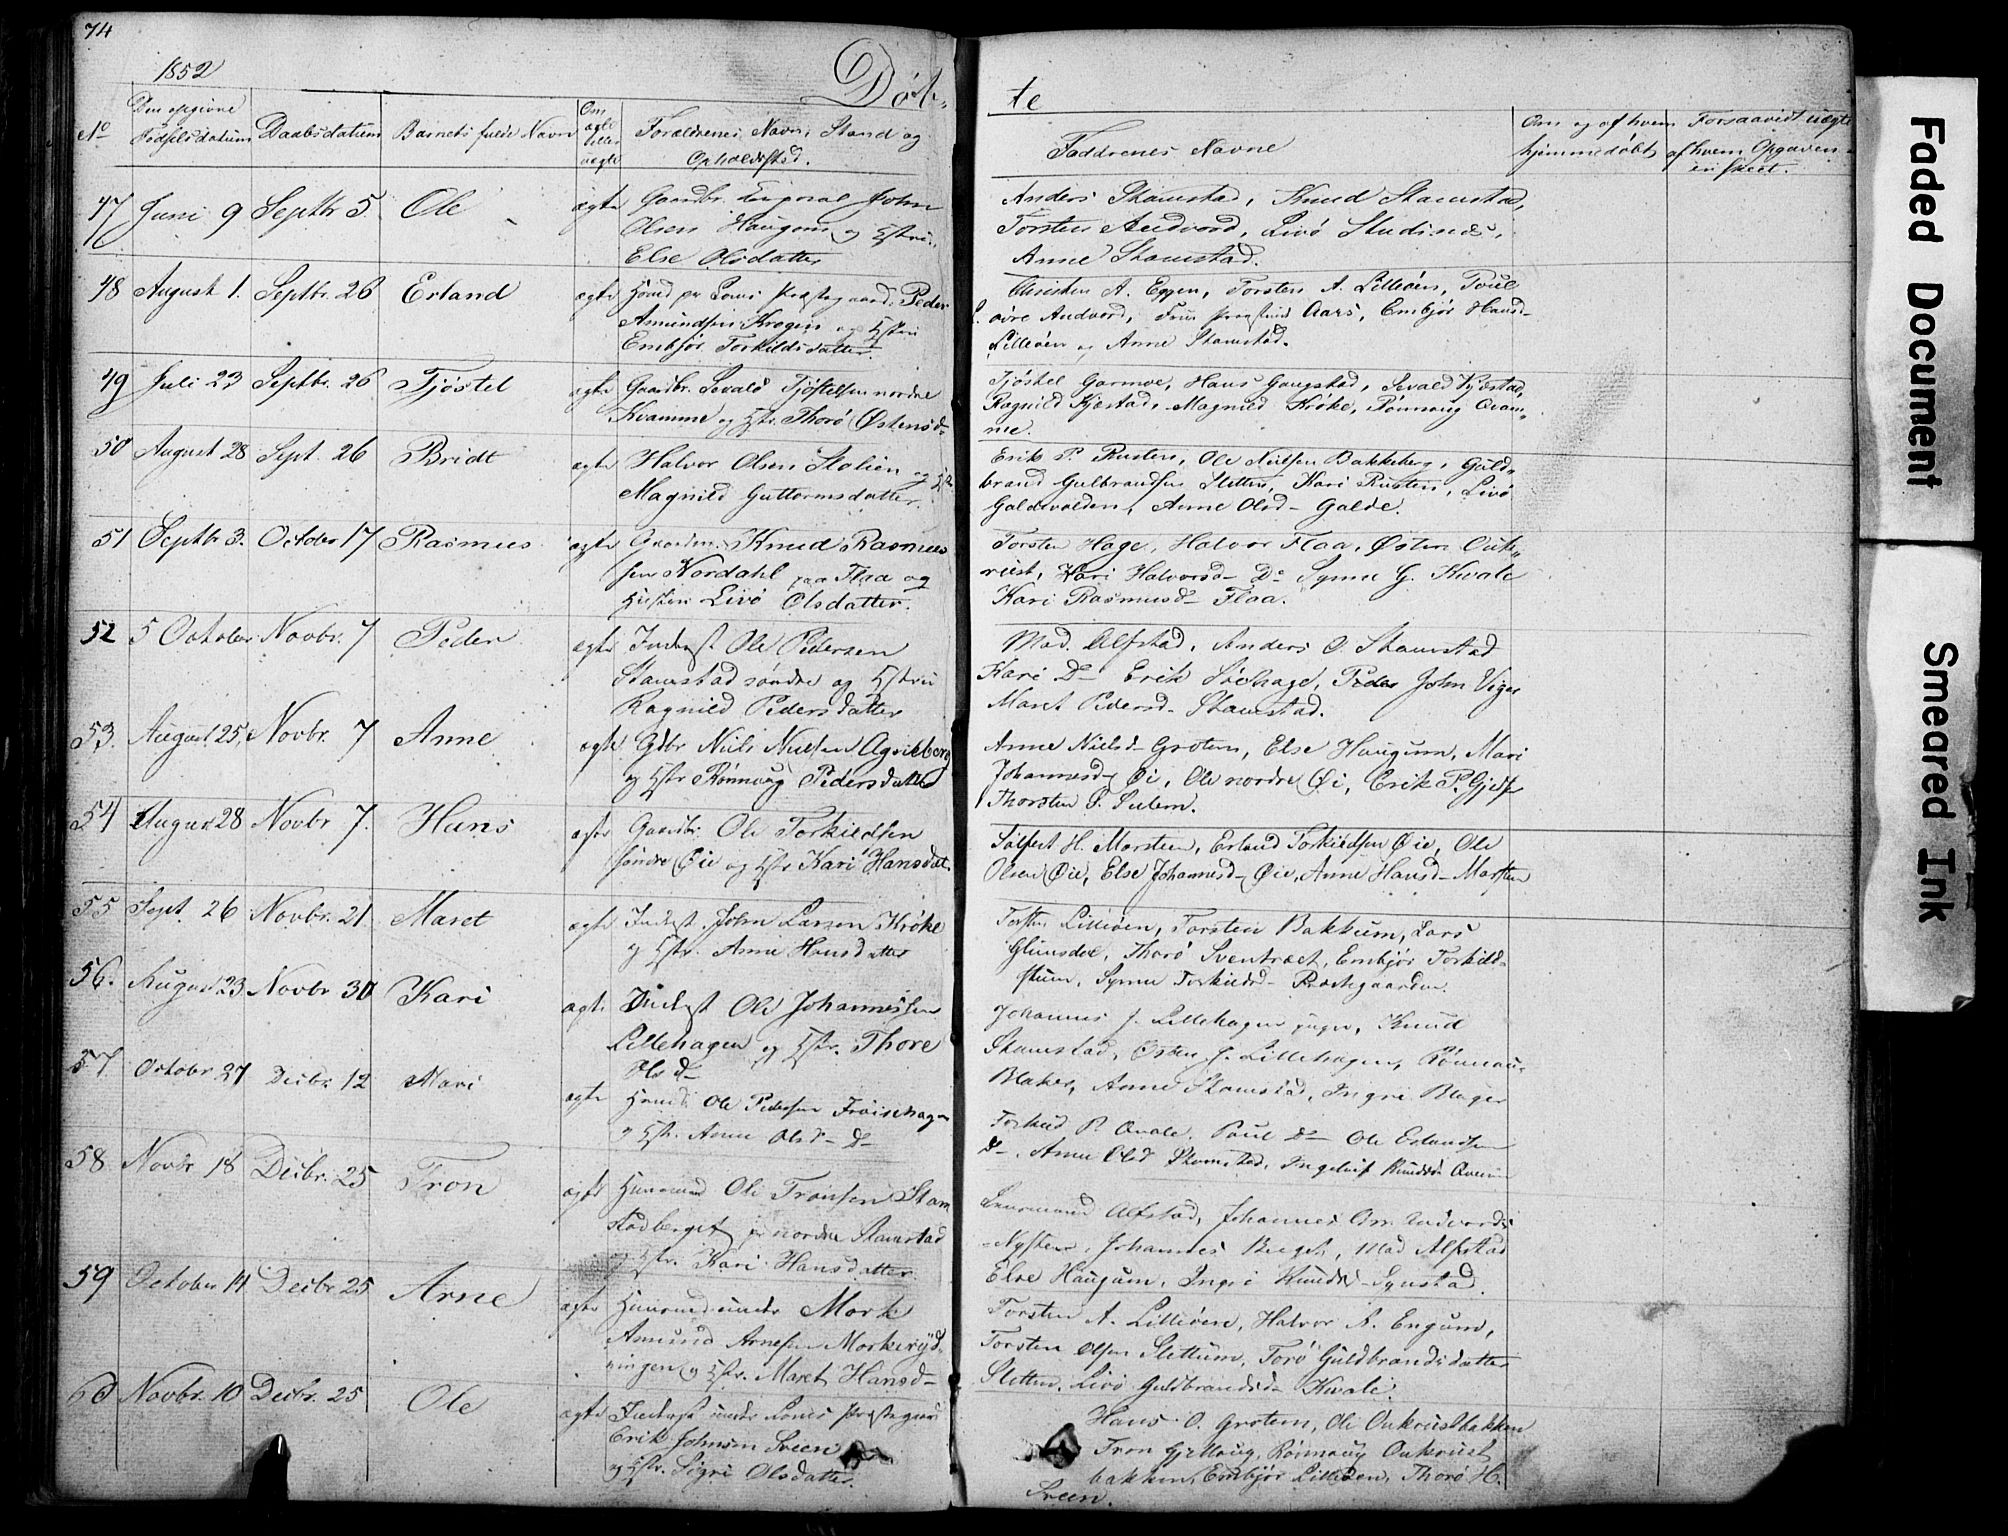 74
1852
Døb-
te
No
Den opgivne
Fødselsdatum
Daabsdatum
Barnets fulde Navn
Om
ægte
eller
uægte
Forældrenes Navn, Stand og
Opholdssted.
Faddrenes Navne
Om og af hvem
hjemmedøbt
Forsaavidt uægte
af hvem Opgaven
er skeet.
47 Juni 9 Septbr 5. Ole ægte Gaardbr. Korporal John
Olsen Haugen og Hstru
Else Olsdatter
Anders Stamstad, Knud Stamstad,
Torsten Andvord, Livö
Anne Stamstad.
48 August 1. Septbr. 26 Erland ægte Huusmd pr Loms Præstegaard Peder
Amundsen Krogen og Hstru
Embjör Torkildsdatter.
Christen A. Eggen, Torsten A. Lilleöen, Poul
övre Andvord, Aars, Embjör Hansd-
Lilleöen og Anne Stamstad.
49 Juli 23 Septbr. 26 Tjöstel ægte Gaardbr. Sevald Tjöstelsen nordre
Kvamme og Hstr. Thorö Østensd-
Tjöstel Garmoe, Hans Gaugstad, Sevald Kjæstad,
Ragnild Kjæstad, Magnild Kröke, Rönnaug Qvam-
me.
50 August 28 Sept. 26 Bridt ægte Halvor Olsen Stolien og Hstr
Magnild Guttormsdatter.
Erik P. Rusten, Ole Nielsen Bakkeberg, Guld-
brand Gulbrandsen Sletten, Kari Rusten, Livö
Galdevolden, Anne Olsd- Galde.
51 Septbr 3. October 17 Rasmus ægte Gaardm. Knud Rasmus
sen Nordahl paa Flaa og
Hustru Livö Olsdatter.
Torsten Hage, Halvor Flaa, Østen Ouk-
rust, Kari Halvorsd- Do Synne G. Kvale
Kari Rasmusd- Flaa.
52 5 October Novbr. 7 Peder ægte Inderst Ole Pedersen
Stamstad søndre og Hstru
Ragnild Pedersdatter
Mad. Alfstad, Anders O. Stamstad
Kari Do Erik Söehage, Peder John
Maret Pedersd- Stamstad.
53. August 25, Novbr. 7 Anne ægte Gdbr Niels Nielsen
og Hstr Rönnaug Pedersdatter
Anne Nielsd- Grotem, Else Haugum, Mari
Johannesd- Øi, Ole nordre Øi, Erik P.
Thorsten P. Sulem.
54 August 28 Novbr 7. Hans ægte Gaardbr. Ole Torkildsen
söndre Øie og Hstr Kari Hansdat.
Sölfest H. Marstein, Erland Torkildsen Øie, Ole
Olsen Øie, Else Johannesd- Øie, Anne Hansd- Marsten
55 Sept. 26 Novbr. 21 Maret ægte Inderst. John Larsen Kröke
og Hstr. Anne Hansdatter
Torsten Lilleöen, Torsten Bakkum, Lars
Glimsdal, Thorö Sventræet, Embjör Torkild-
Synne Torkildsd- Præstegaarden.
56. August 23 Novbr 30 Kari ægte Inderst Ole Johannessen
Lillehagen og Hstr. Thore
Olsd-
Johannes J. Lillehagen yngre, Knud
Stamstad, Østen J. Lillehagen, Rönnau
Blaker, Anne Stamstad, Ingri Blager
57 Octobr 27 Decbr. 12 Mari ægte Huusmd Ole Pedersen Fröisehage
og Hstr. Anne Olsd- Do
Torkild P. Qvale, Paul Do Ole Erlandsen
Do, Anne Olsd Stamstad, Knudsd
58 Novbr 18 Decbr. 25 Tron ægte Huusmand Ole Tronsen Stam
stadberget pr nordre Stamstad
og Hstr. Kari Hansdatter
Lensmand Alfstad, Johannes
Johannes Berget, Mad Alfstad
Else Haugum, Ingri Knudsd- Synstad.
59 October 14 Decbr 25 Arne ægte Huusmand under Mork
Amund Arnesen Morkeryd-
ningen og Hstr. Maret Hansd-
Torsten A. Lilleöen, Halvor A. Engum,
Torsten Olsen Slettum, Torö Guldbrandsdatter
Sletten, Livö Guldbrandsd- Kvale.
60 Novbr. 10 Decbr. 25 Ole ægte Inderst under Loms Præstegaard
Erik Johnsen Sveen
og Hstr. Sigri Olsdatter.
Hans O. Grotem, Ole Oukrustbakken
Tron Rönnaug Oukrust
bakken, Embjör Lilleöen, Thorö H.
Sveen.
Faded Document
Smeared Ink